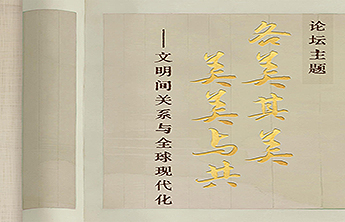 论坛主题
各美其美
美美与共
——文明间关系与全球现代化